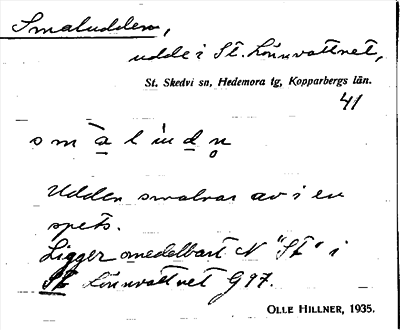 Smaludden,
udde i St. Lönnvattnet,
St. Skedvi sn, Hedemora tg, Kopparbergs län.
41
Udden smalnar av i en
spets.
Ligger omedelbart N "St" i
St Lönnvattnet G97.
OLLE HILLNER, 1935.